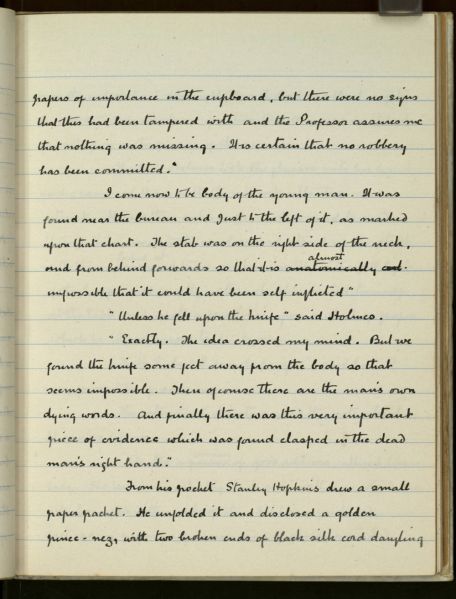 papers of importance in the cupboard, but there were no signs
that this had been tampered with and the Professor assures me
that nothing was missing. It is certain that no robbery
has been committed."
I come now to be body of the young man. It was
found near the bureau and just to the left of it, as marked
upon that chart. The stab was on the right side of the neck,
almost
and from behind forwards so that it is anatomically
impossible that it could have been self inflicted"
"Unless he fell upon the knife" said Holmes.
"Exactly. The idea crossed my mind. But we
found the knife some feet away from the body so that
seems impossible. Then of course there are the man's own
dying words. And finally there was this very important
piece of evidence which was found clasped in the dead
man's right hand."
From his pocket Stanley Hopkins drew a small
paper packet. He unfolded it and disclosed a golden
pince-nez, with two broken ends of black silk cord dangling